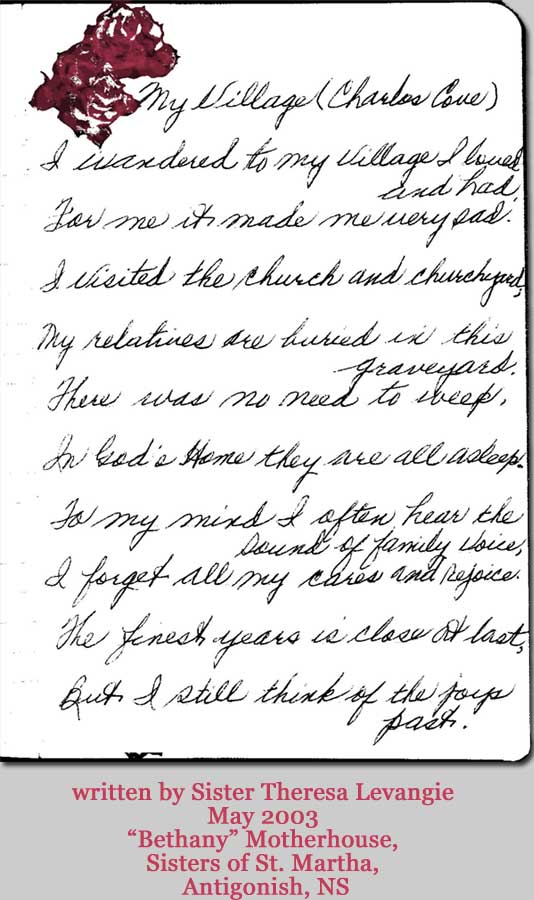 My Village (Charlos Cove)
I wandered to my Village I loved
and had,
For me it made me very sad.
I visited the church and churchyard,
My relatives are buried in this
graveyard.
There was no need to weep,
In God's Home they are all asleep.
To my mind I often hear the
Sound of family voice,
I forget all my cares and rejoice.
The finest years is close at last,
But I still think of the joys
past.
written by Sister Theresa Levangie
May 2003
“Bethany” Motherhouse,
Sisters of St. Martha,
Antigonish, NS